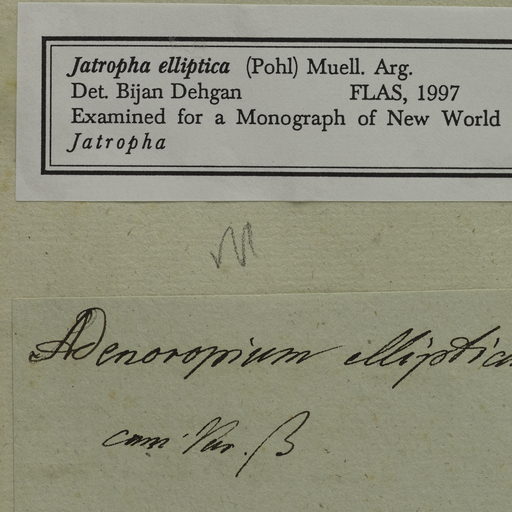 Jatropha elliptica (Pohl) Muell. Arg.
Det. Bijan Dehgan FLAS, 1997
Examined for a Monograph of New World
Jatropha
Adenoropium elliptic
cum Var. β